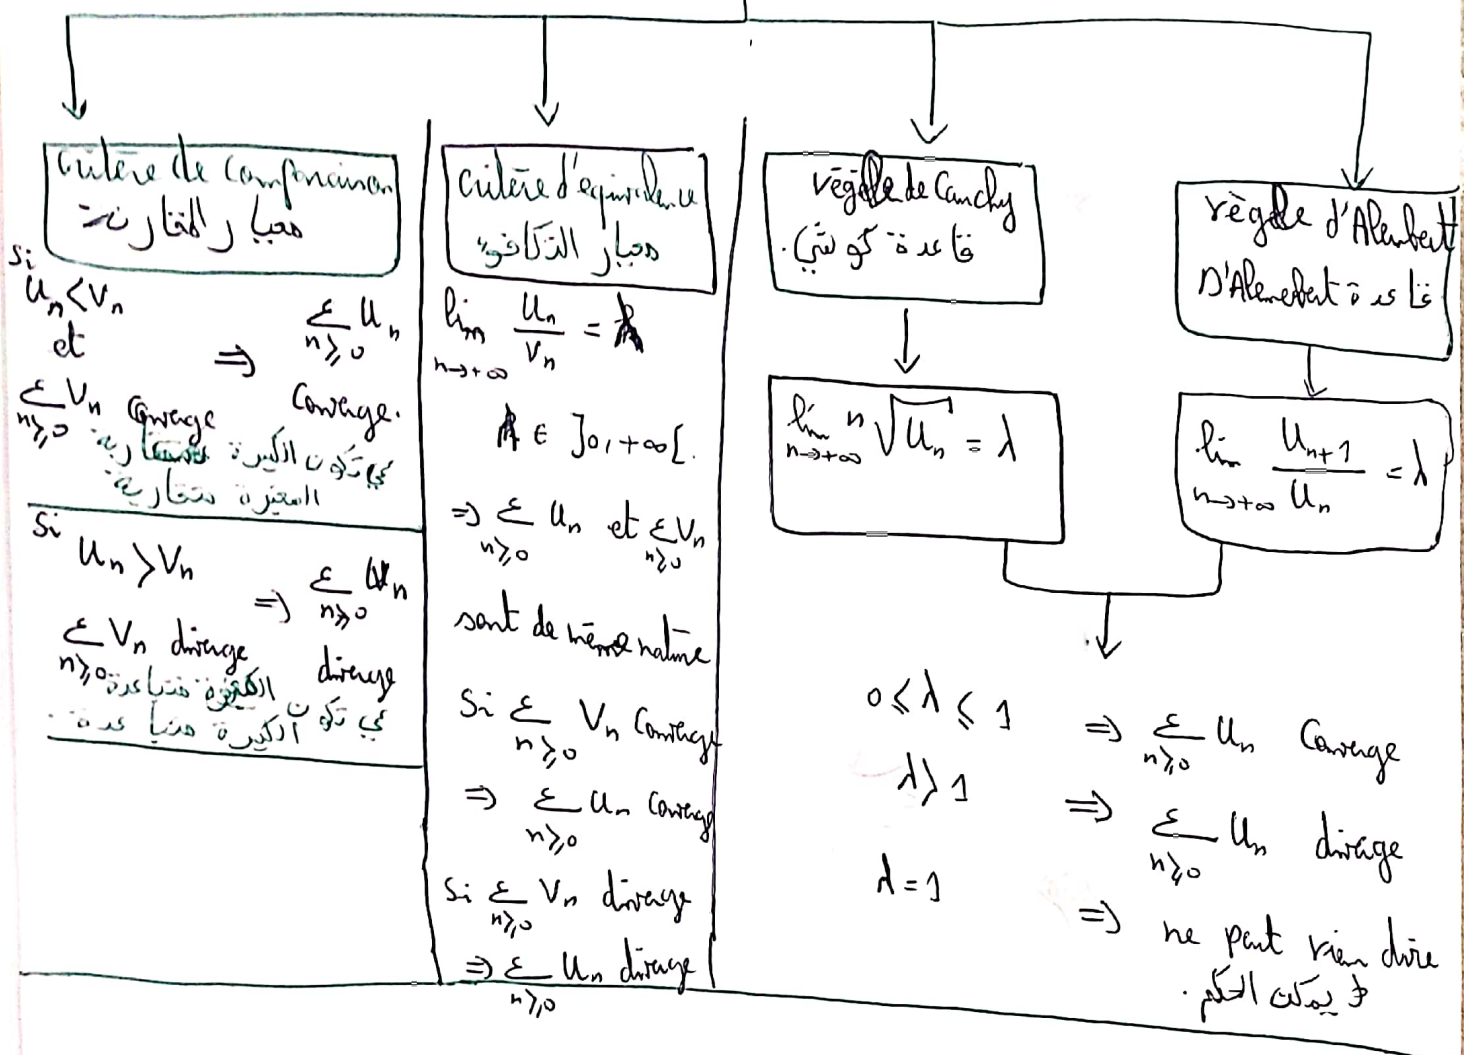 critère de comparaison
معيار المقارنة
Si
Un < Vn
et
Σ Vn converge
n≥0
⇒ Σ Un
n≥0
converge.
كي تكون الكبيرة متقاربة
الصغيرة متقاربة
Si
Un > Vn
Σ Vn diverge
n≥0
⇒ Σ Un
n≥0
diverge
كي تكون الصغيرة متباعدة
الكبيرة متباعدة.
critère d'équivalence
معيار التكافؤ
lim Un/Vn =
n→+∞
∈ ]0,+∞[.
⇒ Σ Un et Σ Vn
n≥0 n≥0
sont de même nature
Si Σ Vn converge
n≥0
⇒ Σ Un converge
n≥0
Si Σ Vn diverge
n≥0
⇒ Σ Un diverge
n≥0
règle de Cauchy
قاعدة كوشي.
lim n√Un = λ
n→+∞
règle d'Alembert
قاعدة D'Alembert
lim Un+1/Un = λ
n→+∞
0 ≤ λ ≤ 1 ⇒ Σ Un converge
n≥0
λ > 1 ⇒ Σ Un diverge
n≥0
λ = 1 ⇒ ne peut rien dire
لا يمكن الحكم.